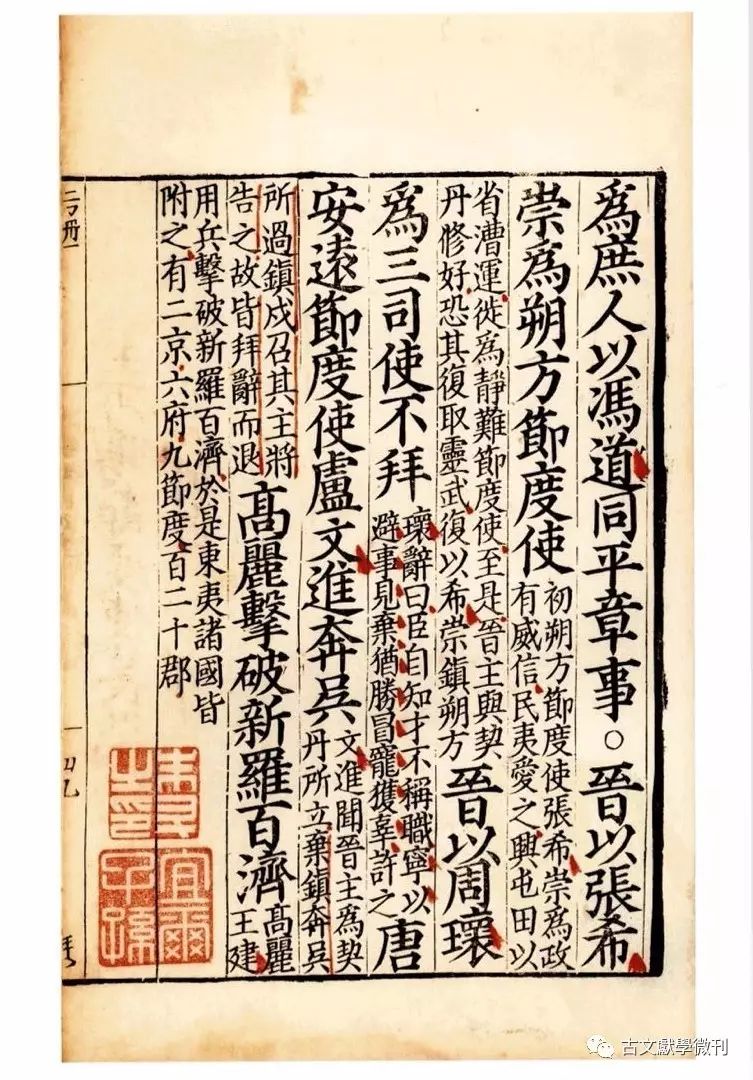 爲庶人以馮道同平章事○晉以張希
崇爲朔方節度使
初朔方節度使張希崇爲政
有威信民夷愛之興屯田以
省漕運徙爲靜難節度使至是晉主與契
丹修好恐其復取靈武復以希崇鎭朔方
晉以周瓌
爲三司使不拜
瓌辭曰臣自知才不稱職寧以
避事見棄猶勝冒寵獲辜許之
唐
安遠節度使盧文進奔吳
文進聞晉主爲契
丹所立棄鎭奔吳
所過鎭戍召其主將
告之故皆拜辭而退
高麗擊破新羅百濟
高麗
王建
用兵擊破新羅百濟於是東夷諸國皆
附之有二京六府九節度百二十郡
宜爾
子孫
古文獻學微刊